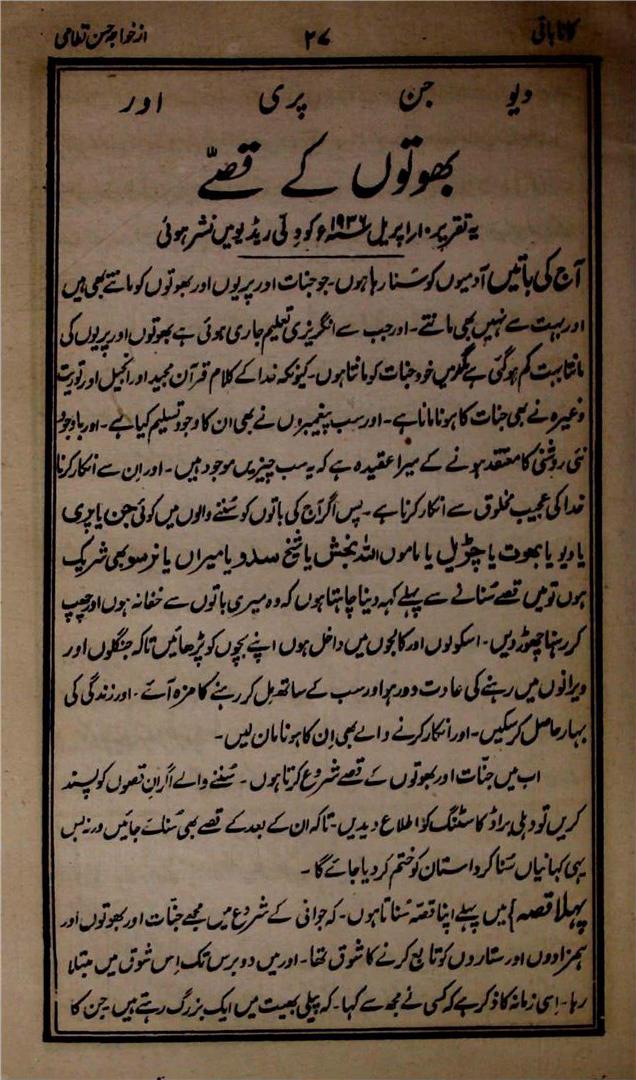 کانا باتی ۲۷ از خواجہ حسن نظامی
دیو جن پری اور
بھوتوں کے قصّے
یہ تقریر ۱۰ اپریل ۱۹۳۶ء کو دہلی ریڈیو میں نشر ہوئی
آج کی باتیں آدمیوں کو سُنا رہا ہوں۔ جو جنات اور پریوں اور بھوتوں کو مانتے بھی ہیں
اور بہت سے نہیں بھی مانتے۔ اور جب سے انگریزی تعلیم جاری ہوئی ہے بھوتوں اور پریوں کی
مانتا بہت کم ہو گئی ہے مگر میں خود جنات کو مانتا ہوں۔ کیونکہ خدا کے کلام قرآن مجید اور انجیل اور توریت
وغیرہ نے بھی جنات کا ہونا مانا ہے۔ اور سب پیغمبروں نے بھی ان کا وجود تسلیم کیا ہے۔ اور باوجود
نئی روشنی کا معتقد ہونے کے میرا عقیدہ ہے کہ یہ سب چیزیں موجود ہیں۔ اور ان سے انکار کرنا
خدا کی عجیب مخلوق سے انکار کرنا ہے۔ پس اگر آج کی باتوں کو سُننے والوں میں کوئی جن یا پری
یا دیو یا بھوت یا چڑیل یا ماموں اللہ بخش یا شیخ سدو یا میراں یا نرسو بھی شریک
ہوں تو میں قصے سُنانے سے پہلے کہہ دینا چاہتا ہوں کہ وہ میری باتوں سے خفا نہ ہوں اور چھپ
کر رہنا چھوڑ دیں۔ اسکولوں اور کالجوں میں داخل ہوں اپنے بچوں کو پڑھائیں تاکہ جنگلوں اور
ویرانوں میں رہنے کی عادت دور ہو اور سب کے ساتھ مِل کر رہنے کا مزہ آئے۔ اور زندگی کی
بہار حاصل کر سکیں۔ اور انکار کرنے والے بھی اِن کا ہونا مان لیں۔
اب میں جنّات اور بھوتوں کے قصے شروع کرتا ہوں۔ سُننے والے اگر اِن قصوں کو پسند
کریں تو دہلی براڈ کاسٹنگ کو اطلاع دیدیں۔ تاکہ ان کے بعد کے قصے بھی سُنائے جائیں ورنہ بس
یہی کہانیاں سُنا کر داستان کو ختم کر دیا جائے گا۔
پہلا قصہ} میں پہلے اپنا قصّہ سُناتا ہوں۔ کہ جوانی کے شروع میں مجھے جنّات اور بھوتوں اور
ہمزادوں اور ستاروں کو تابع کرنے کا شوق تھا۔ اور میں دو برس تک اِس شوق میں مبتلا
رہا۔ اِسی زمانہ کا ذکر ہے کہ کسی نے مجھ سے کہا۔ کہ پیلی بھیت میں ایک بزرگ رہتے ہیں۔ جن کا